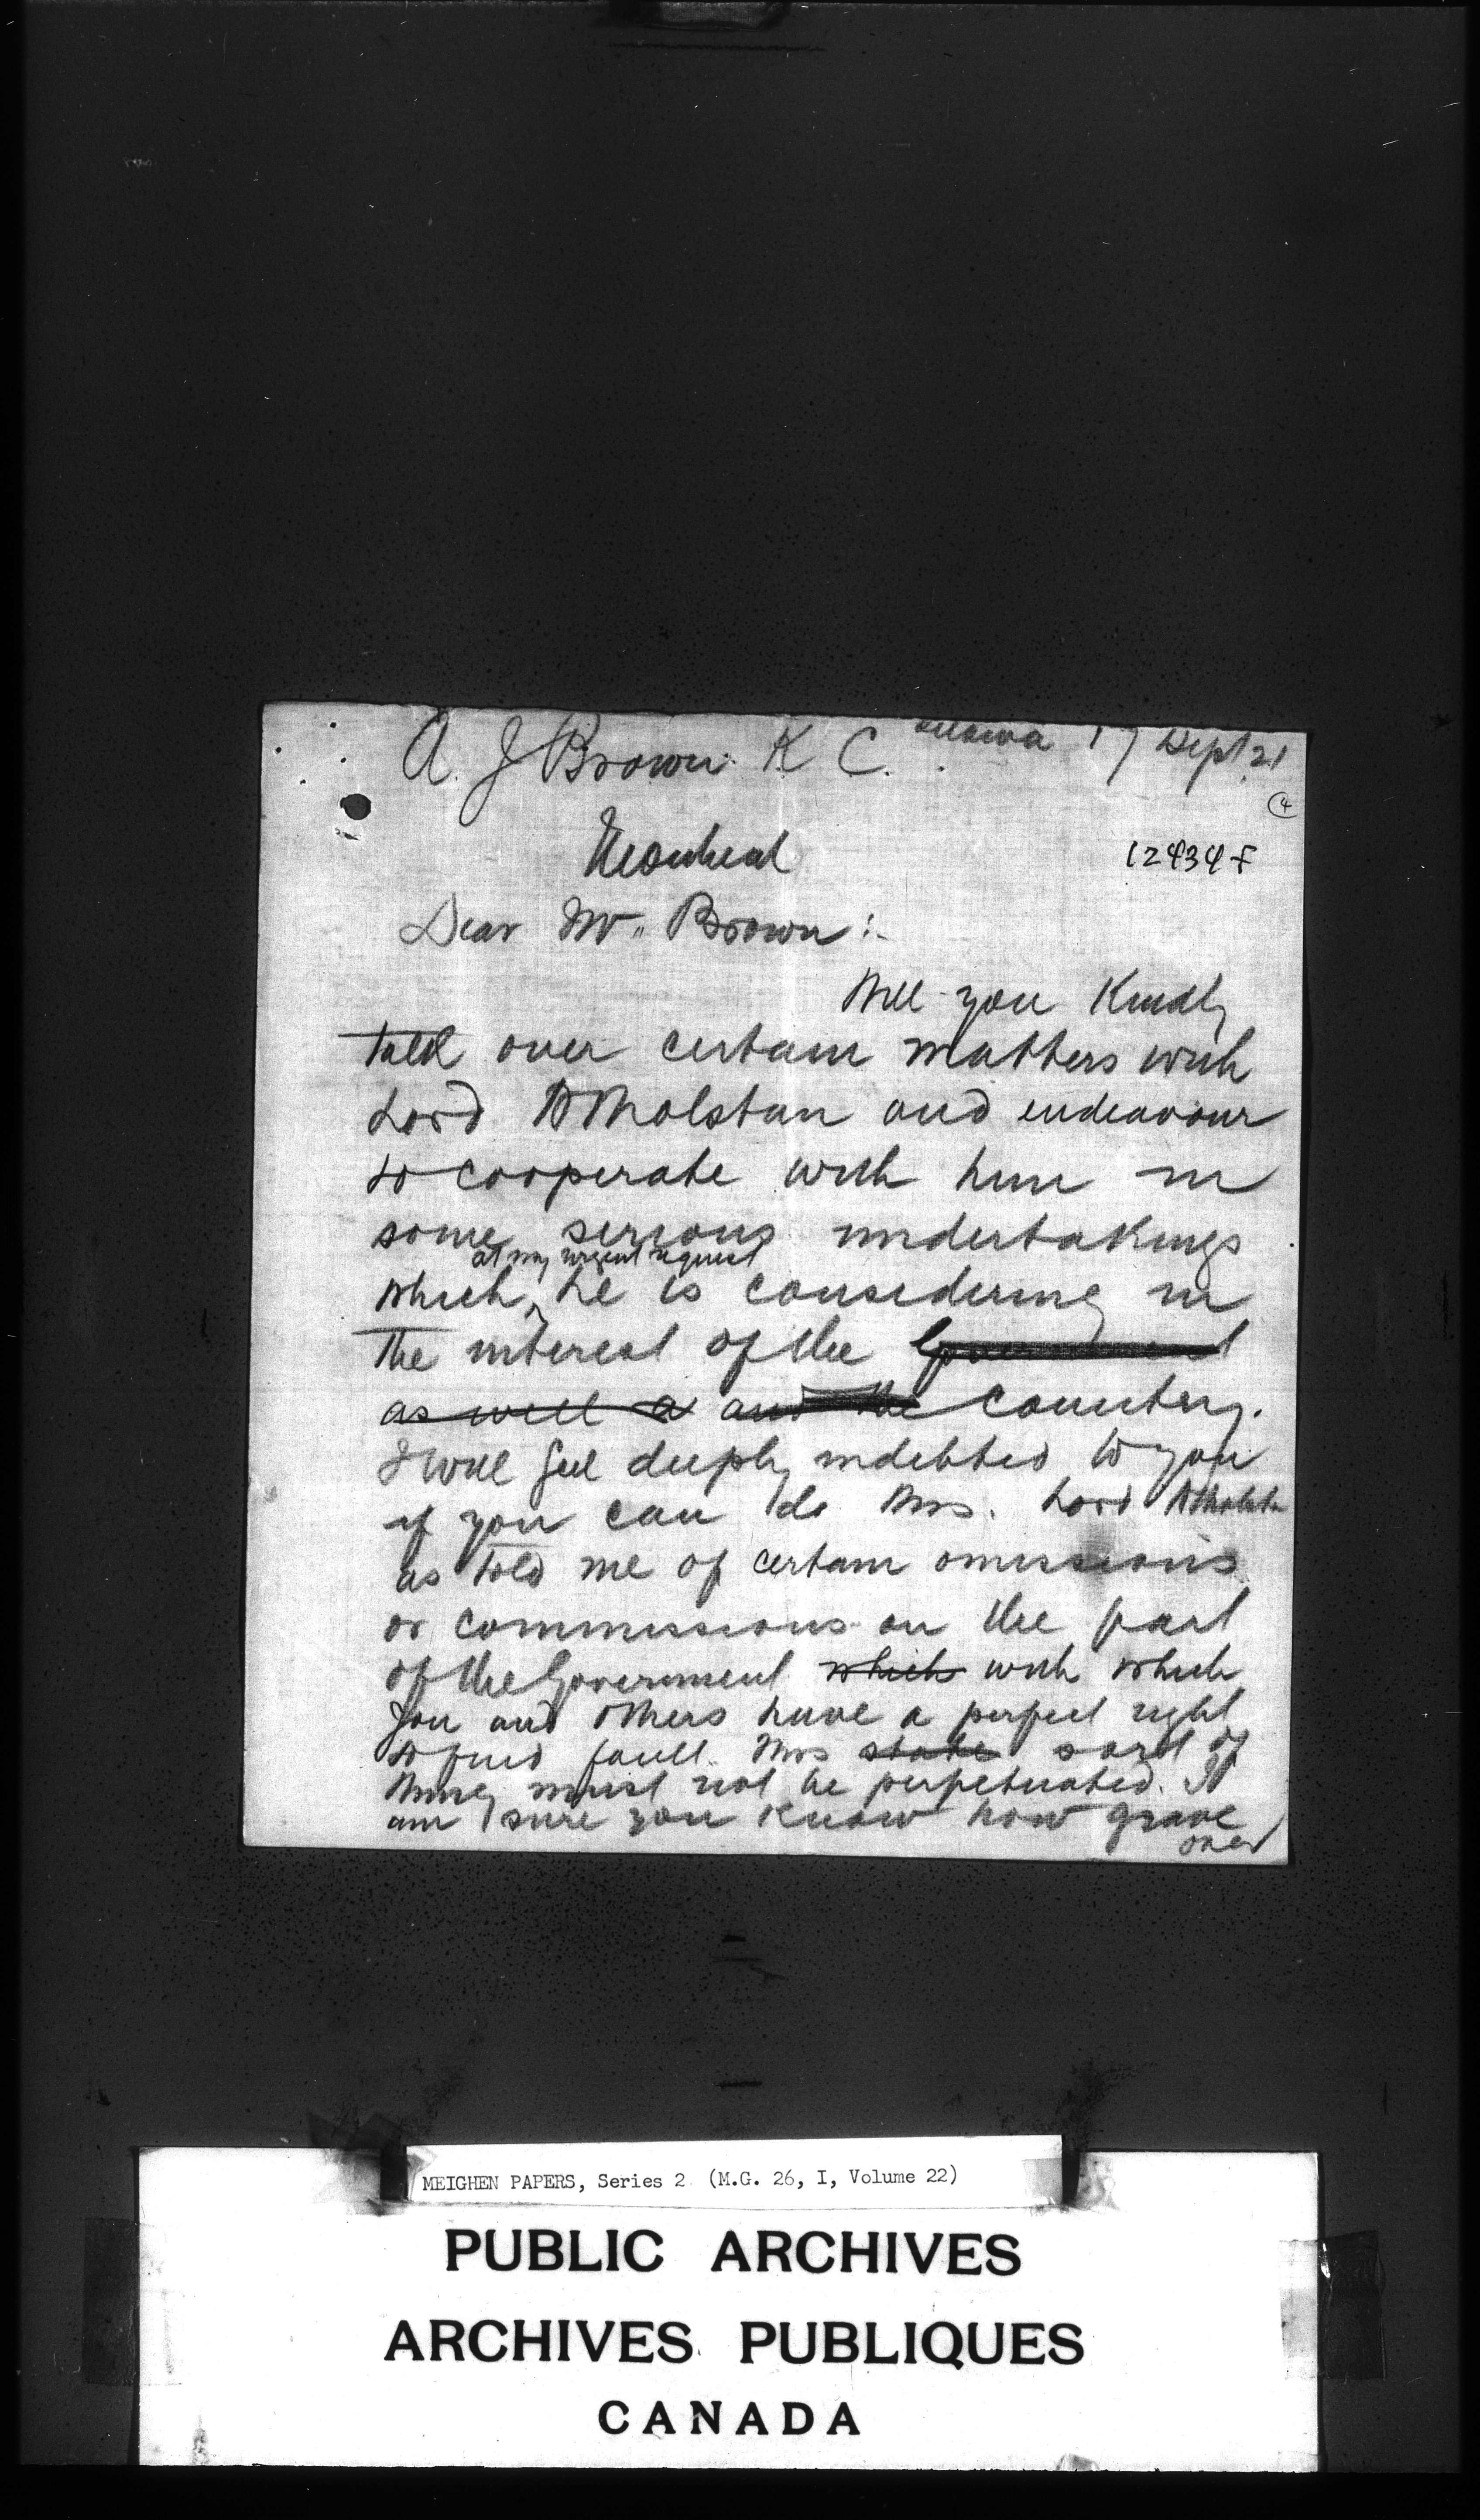 A. J Brown K C. Ottawa 17 Sept 21
4
Montreal
12434F
Dear Mr. Brown:-
Will you Kindly
talk over certain matters with
Lord Atholstan and endeavour
to cooperate with him in
some serious undertakings
at my urgent request
which, he is considering in
the interest of the Government
as well a and the Country.
I will feel deeply indebted to you
if you can do this. Lord Atholstan
as told me of certain omissions
or commissions on the part
of the Government which with which
you and others have a perfect right
to find fault. This state sort of
thing must not be perpetuated. I
am sure you know how grave
over
MEIGHEN PAPERS, Series 2 (M.G. 26, I, Volume 22)
PUBLIC ARCHIVES
ARCHIVES PUBLIQUES
CANADA